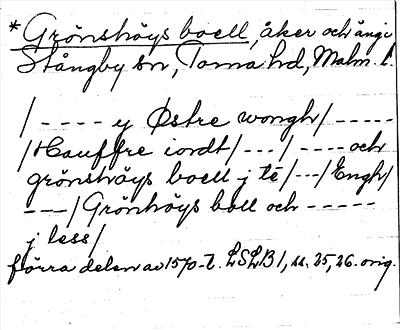 *Grönshöys boell, åker och äng i
Stångby sn, Torna hd, Malm. l.
/ - - - - y Østre wongh/ - - - - -
/Hauffre iordt/ - - - / - - - - och
grönshöys boell j té/ - - -/Engh/
- - - -/Grönhöys boll och - - - - -
j less/
förra delen av 1570-t. LSLB 1, ss. 25, 26. orig.